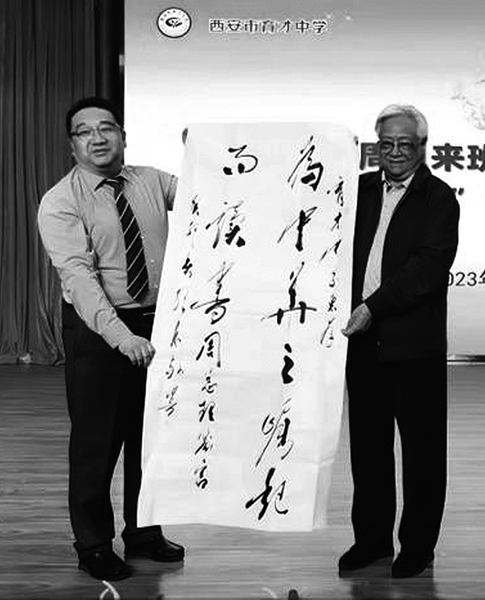 西安市育才中学
周 来班
”
023年
育才中学惠存
為中華之崛起
而读書周总理发言